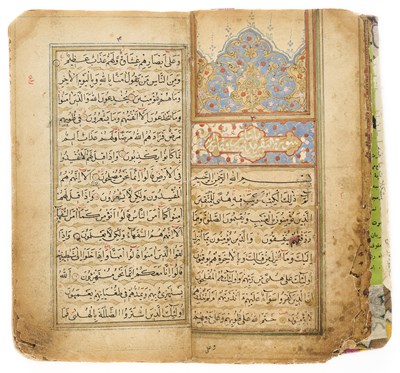 بسم الله الرحمن الرحيم
الم ذلك الكتب لا ريب فيه هدى للمتقين
الذين يؤمنون بالغيب ويقيمون الصلوة ومما
رزقنهم ينفقون والذين يؤمنون بما انزل
اليك وما انزل من قبلك وبالاخرة هم يوقنون
اولئك على هدى من ربهم واولئك هم المفلحون ان
الذين كفروا سواء عليهم ءانذرتهم ام لم تنذرهم لا
يؤمنون ختم الله على قلوبهم وعلى سمعهم
وعلى ابصارهم غشاوة ولهم عذاب عظيم
ومن الناس من يقول امنا بالله وباليوم الاخر
وما هم بمؤمنين يخدعون الله والذين امنوا
وما يخدعون الا انفسهم وما يشعرون في قلوبهم
مرض فزادهم الله مرضا ولهم عذاب اليم
بما كانوا يكذبون واذا قيل لهم لا تفسدوا
في الارض قالوا انما نحن مصلحون الا انهم هم
المفسدون ولكن لا يشعرون واذا قيل لهم
امنوا كما امن الناس قالوا انؤمن كما امن
السفهاء الا انهم هم السفهاء ولكن لا يعلمون واذا
لقوا الذين امنوا قالوا امنا واذا خلوا الى شيطينهم
قالوا انا معكم انما نحن مستهزؤن الله
يستهزئ بهم ويمدهم في طغيانهم يعمهون
اولئك الذين اشتروا الضللة بالهدى فما